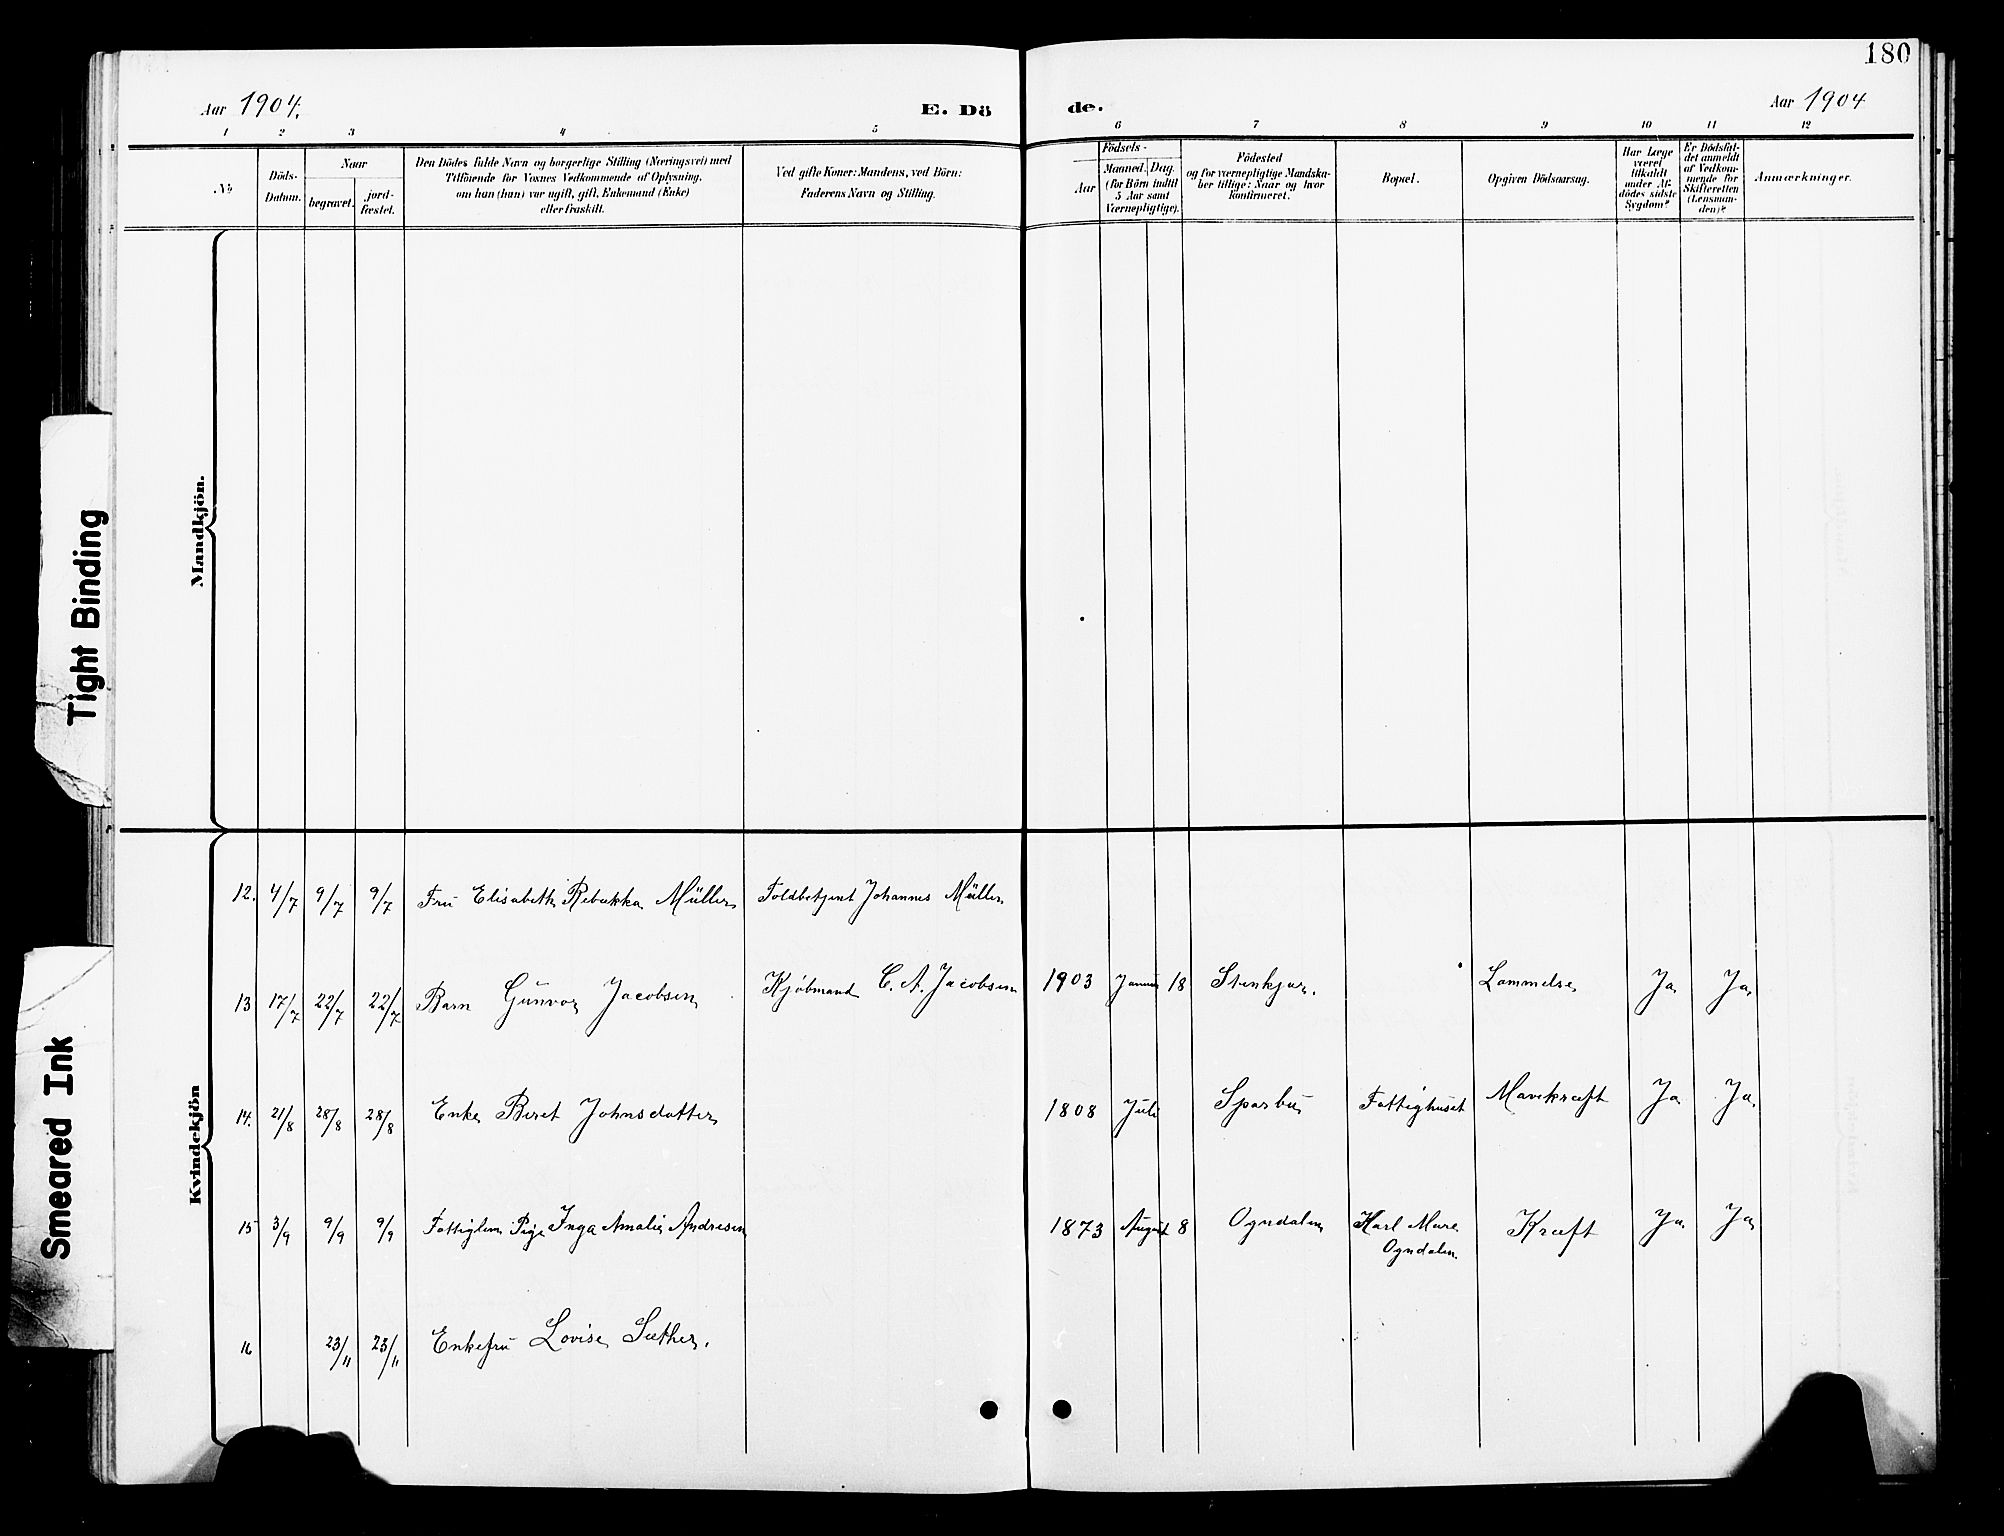 180
Aar 1904.
E. Dö
de.
Aar 1904
1 2 3 4 5 6 7 8 9 10 11 12
No
Döds-
Datum.
Naar
begravet.
jord-
fæstet.
Den Dödes fulde Navn og borgerlige Stilling (Næringsvei) med
Tilföiende for Voxnes Vedkommende af Oplysning,
om han (hun) var ugift, gift, Enkemand (Enke)
eller fraskilt.
Ved gifte Koner: Mandens, ved Börn:
Faderens Navn og Stilling.
Födsels-
Aar
Maaned. Dag.
(for Börn indtil
5 Aar samt
Værnepligtige).
Födested
og for værnepligtige Mandska-
ber tillige: Naar og hvor
Konfirmeret.
Bopæl.
Opgiven Dödsaarsag.
Har Læge
været
tilkaldt
under Af-
dödes sidste
Sygdom?
Er Dödsfal-
det anmeldt
af Vedkom-
mende for
Skifteretten
(Lensman-
den)?
Anmærkninger.
Mandkjön.
Kvindekjön
12. 4/7 9/7 9/7 Fru Elisabeth Rebekka Müller Toldbetjent Johannes Müller
13 17/7 22/7 22/7 Barn Gunvor Jacobsen Kjöbmand C. A. Jacobsen 1903 Januar 18 Stenkjær. Lammelse Ja Ja
14. 21/8 28/8 28/8 Enke Beret Johnsdatter 1808 Juli Sparbu Fattighuset Mavekræft Ja Ja
15 3/9 9/9 9/9 Fattiglem Pige Inga Amalie Andresen 1873 August 8 Ogndalen Karl Mære Kræft Ja Ja
Ogndalen
16 23/11 23/11 Enkefru Lovise Sæther.
Tight Binding
Smeared Ink